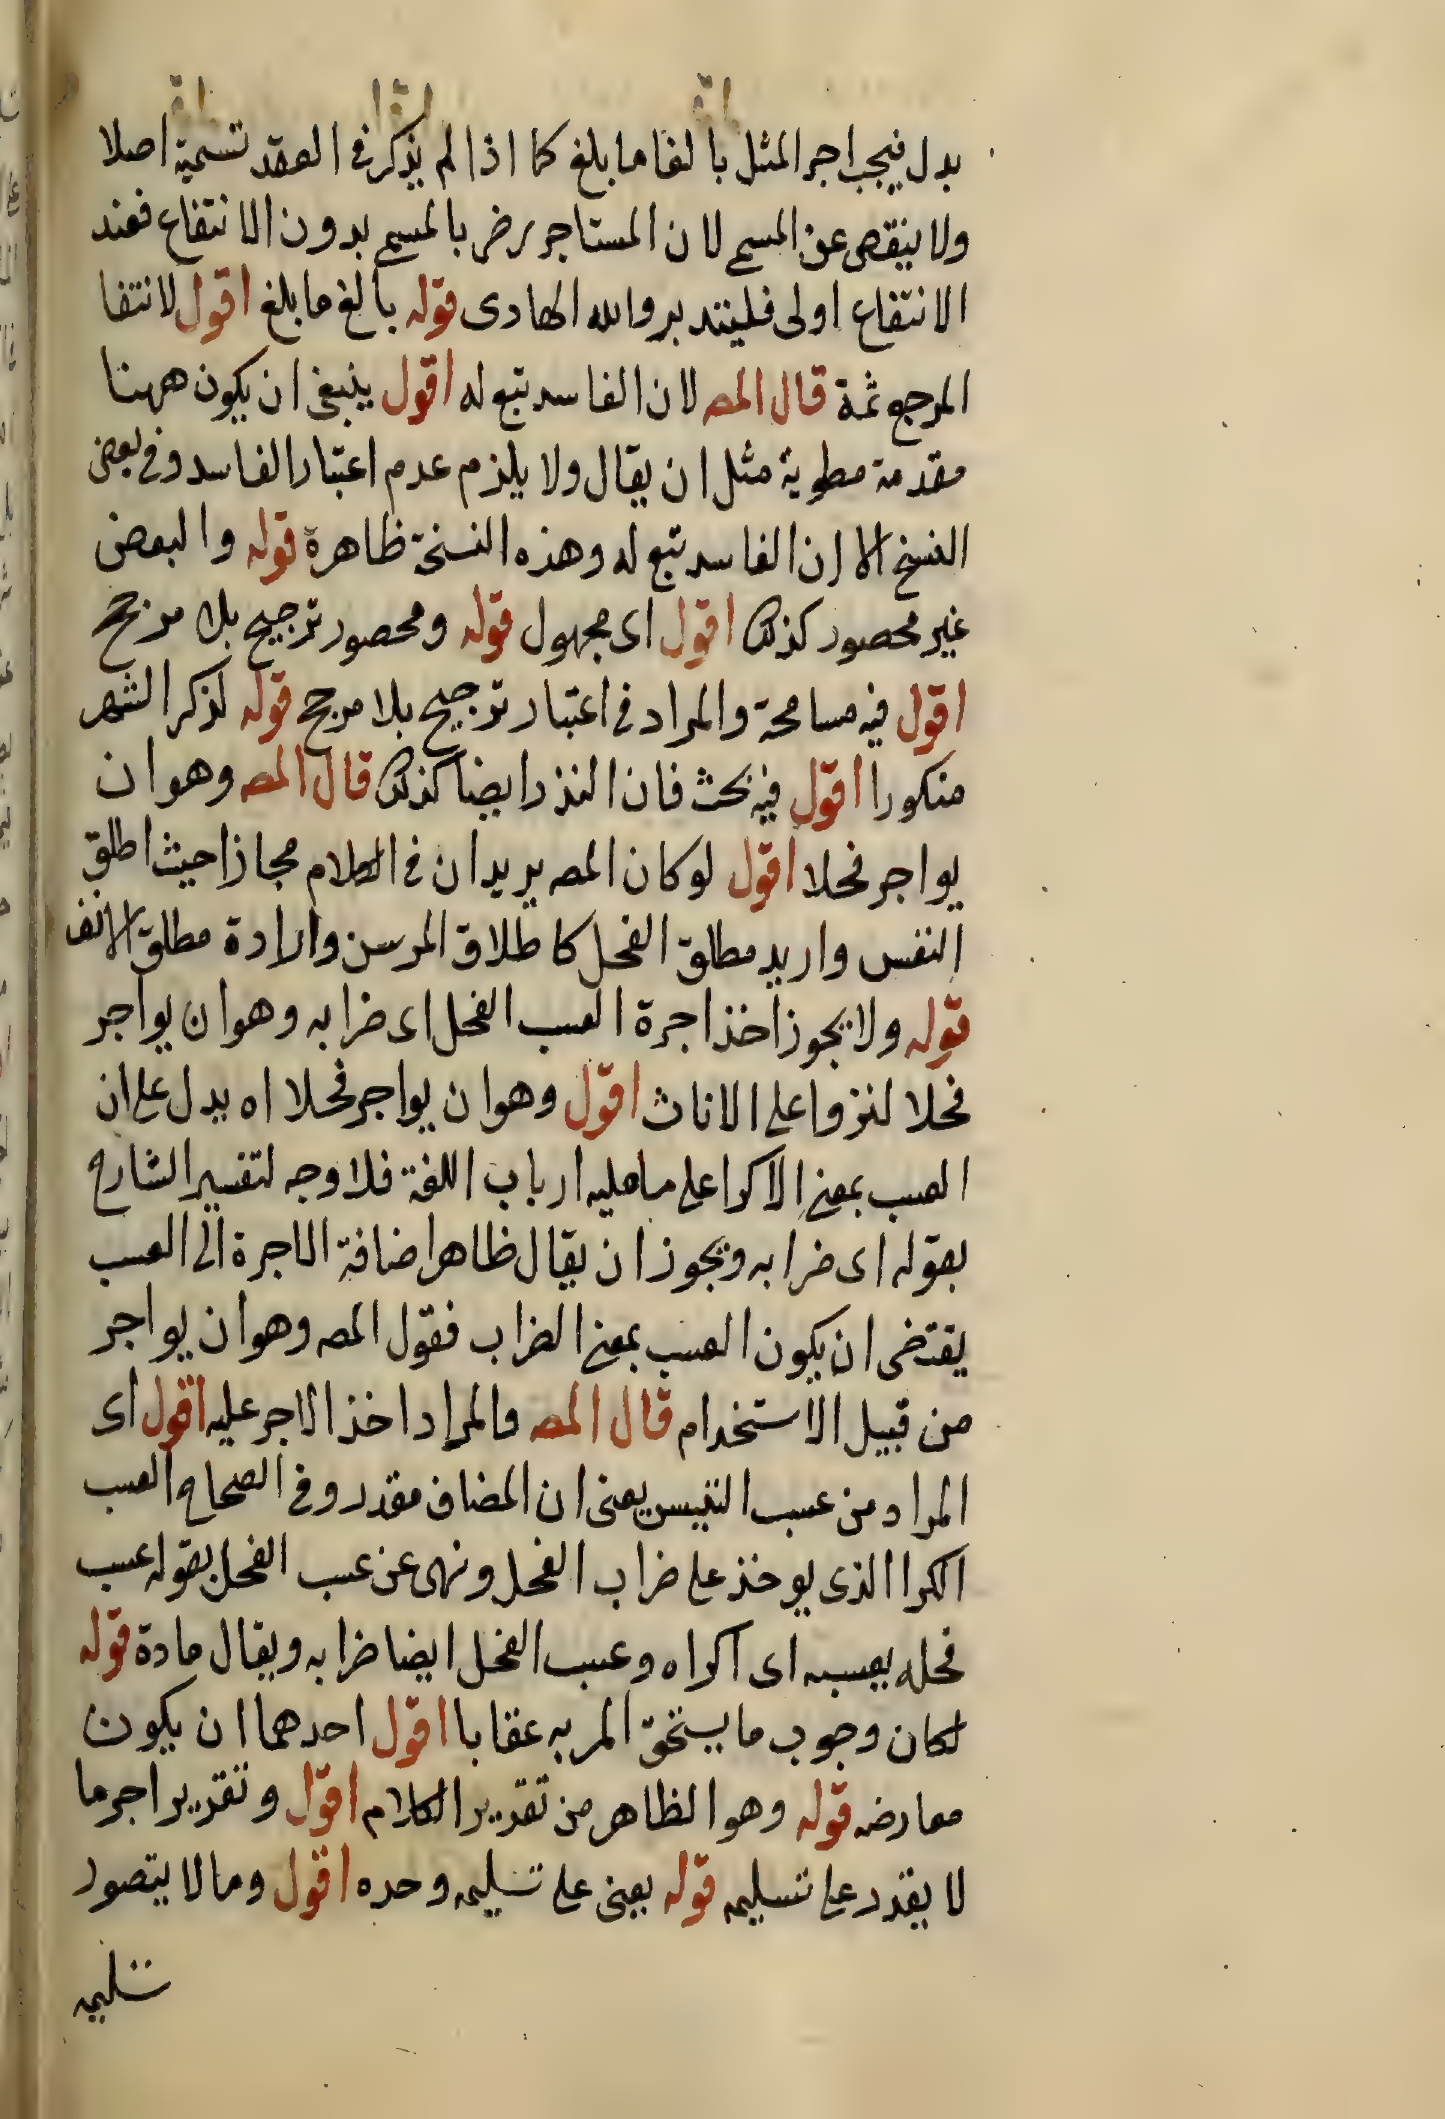 بدل فيجب اجر المثل بالغا ما بلغ كما اذا لم يذكر في العقد تسمية اصلا
ولا ينقص عن المسمى لان المستاجر رضر بالمسمى بدون الانتفاع فعند
الانتفاع اولى فليتدبر والله الهادى قوله بالغ ما بلغ اقول لانتفا
المرجع ثمة قال المص لان الفاسد تبع له اقول ينبغى ان يكون ههنا
مقدمة مطوية مثل ان يقال ولا يلزم عدم اعتبار الفاسد وفي بعض
النسخ الا ان الفاسد تبع له وهذه النسخة ظاهرة قوله والبعض
غير محصور كذلك اقول اى مجهول قوله ومحصور ترجيح بلا مرجح
اقول فيه مسامحة والمراد في اعتبار ترجيح بلا مرجح قوله لذكر الشهر
منكورا اقول فيه بحث فان النذر ايضا كذلك قال المص وهو ان
يواجر فحلا اقول لو كان المص يريد ان في الكلام مجازا حيث اطلق
النفس واريد مطلق الفحل كاطلاق المرسن وارادة مطلق الانف
قوله ولا يجوز اخذ اجرة العسب الفحل اى ضرابه وهو ان يواجر
فحلا لنزوا على الاناث اقول وهو ان يواجر فحلا اه يدل على ان
العسب بمعنى الاكرا على ما عليه ارباب اللغة فلا وجه لتفسير الشارح
بقوله اى ضرابه ويجوز ان يقال ظاهر اضافة الاجرة الى العسب
يقتضى ان يكون العسب بمعنى الضراب فقول المص وهو ان يواجر
من قبيل الاستخدام قال المص والمراد اخذ الاجر عليه اقول اى
المراد من عسب التيس يعنى ان المضاف مقدر وفي الصحاح العسب
الكرا الذى يوخذ على ضراب الفحل ونهى عن عسب الفحل بقوله عسب
فحله يعسبه اى اكراه وعسب الفحل ايضا ضرابه ويقال مادة قوله
لكان وجوب ما يستحق المر به عقابا اقول احدهما ان يكون
معارضه قوله وهو الظاهر من تقدير الكلام اقول وتقدير اجر ما
لا يقدر على تسليمه قوله يعنى على تسليمه وحده اقول وما لا يتصور
تسليمه